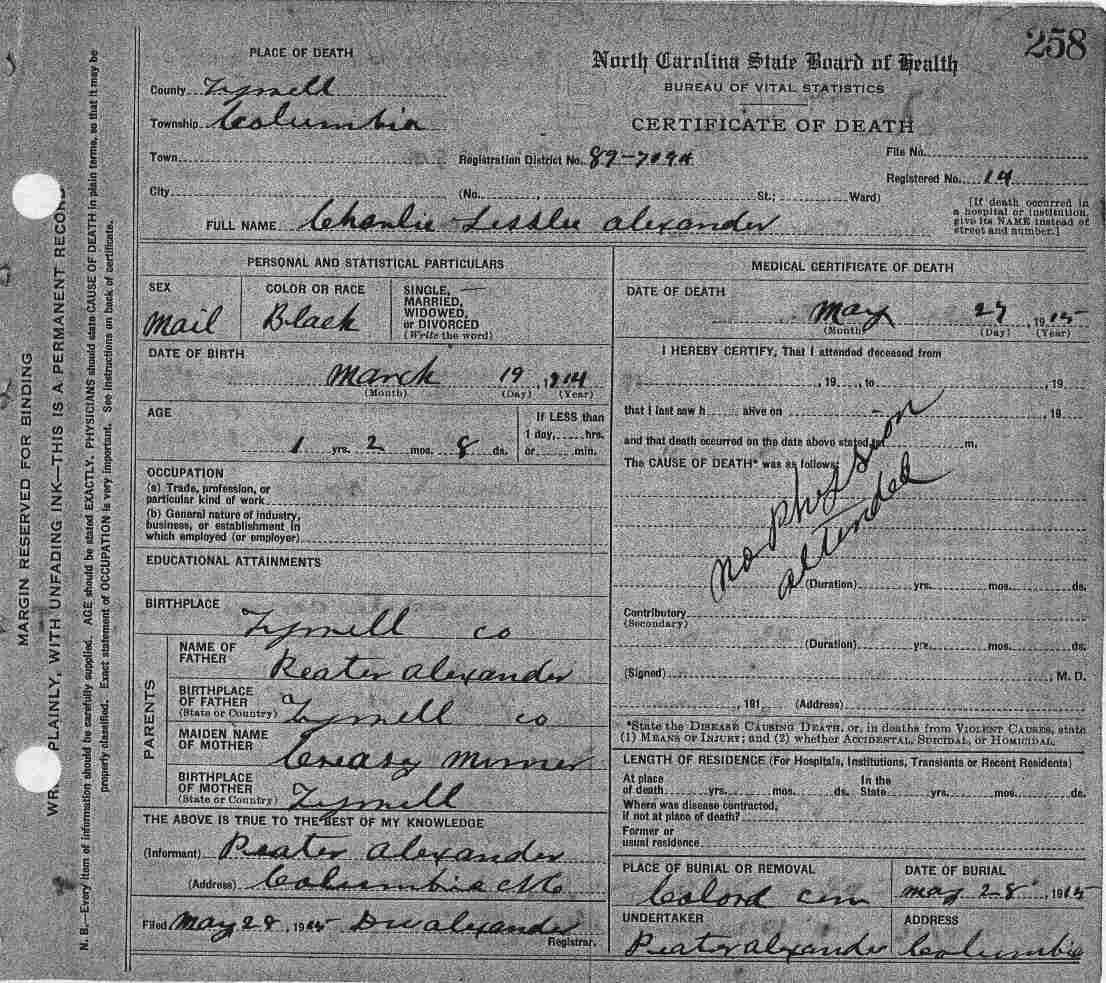 258
PLACE OF DEATH
North Carolina State Board of Health
BUREAU OF VITAL STATISTICS
CERTIFICATE OF DEATH
County Tyrrell
Township Columbia
Town
Registration District No. 89-7094
File No.
Registered No. 14
City (No. , St.; Ward)
[If death occurred in
a hospital or institution,
give its NAME instead of
street and number.]
FULL NAME Charlie Lesslie alexander
PERSONAL AND STATISTICAL PARTICULARS
SEX
mail
COLOR OR RACE
Black
SINGLE,
MARRIED,
WIDOWED,
or DIVORCED
(Write the word)
DATE OF BIRTH
March 19, 1914
(Month) (Day) (Year)
AGE
1 yrs. 2 mos. 8 ds.
If LESS than
1 day, hrs.
or min.
OCCUPATION
(a) Trade, profession, or
particular kind of work
(b) General nature of industry,
business, or establishment in
which employed (or employer)
EDUCATIONAL ATTAINMENTS
BIRTHPLACE
Tyrrell co
PARENTS
NAME OF
FATHER
Reater alexander
BIRTHPLACE
OF FATHER
(State or Country)
Tyrrell co
MAIDEN NAME
OF MOTHER
Creasy
BIRTHPLACE
OF MOTHER
(State or Country)
Tyrrell
THE ABOVE IS TRUE TO THE BEST OF MY KNOWLEDGE
(Informant) Reater alexander
(Address) Columbia NC
Filed May 28, 1915 DW alexander
Registrar.
MEDICAL CERTIFICATE OF DEATH
DATE OF DEATH
may 27, 1915
(Month) (Day) (Year)
I HEREBY CERTIFY, That I attended deceased from
, 19 , to , 19
that I last saw h alive on , 19
and that death occurred on the date above stated at m.
The CAUSE OF DEATH* was as follows:
no physson
attended
(Duration) yrs. mos. ds.
Contributory
(Secondary)
(Duration) yrs. mos. ds.
(Signed) , M. D.
, 191 (Address)
*State the DISEASE CAUSING DEATH, or, in deaths from VIOLENT CAUSES, state
(1) MEANS OF INJURY; and (2) whether ACCIDENTAL, SUICIDAL, or HOMICIDAL.
LENGTH OF RESIDENCE (For Hospitals, Institutions, Transients or Recent Residents)
At place
of death yrs. mos. ds.
In the
State yrs. mos. ds.
Where was disease contracted,
if not at place of death?
Former or
usual residence
PLACE OF BURIAL OR REMOVAL
Colord cem
DATE OF BURIAL
may 28, 1915
UNDERTAKER
Reater alexander
ADDRESS
Columbia
MARGIN RESERVED FOR BINDING
PLAINLY, WITH UNFADING INK—THIS IS A PERMANENT RECORD
N. B.—Every item of information should be carefully supplied. AGE should be stated EXACTLY. PHYSICIANS should state CAUSE OF DEATH in plain terms, so that it may be
properly classified. Exact statement of OCCUPATION is very important. See instructions on back of certificate.